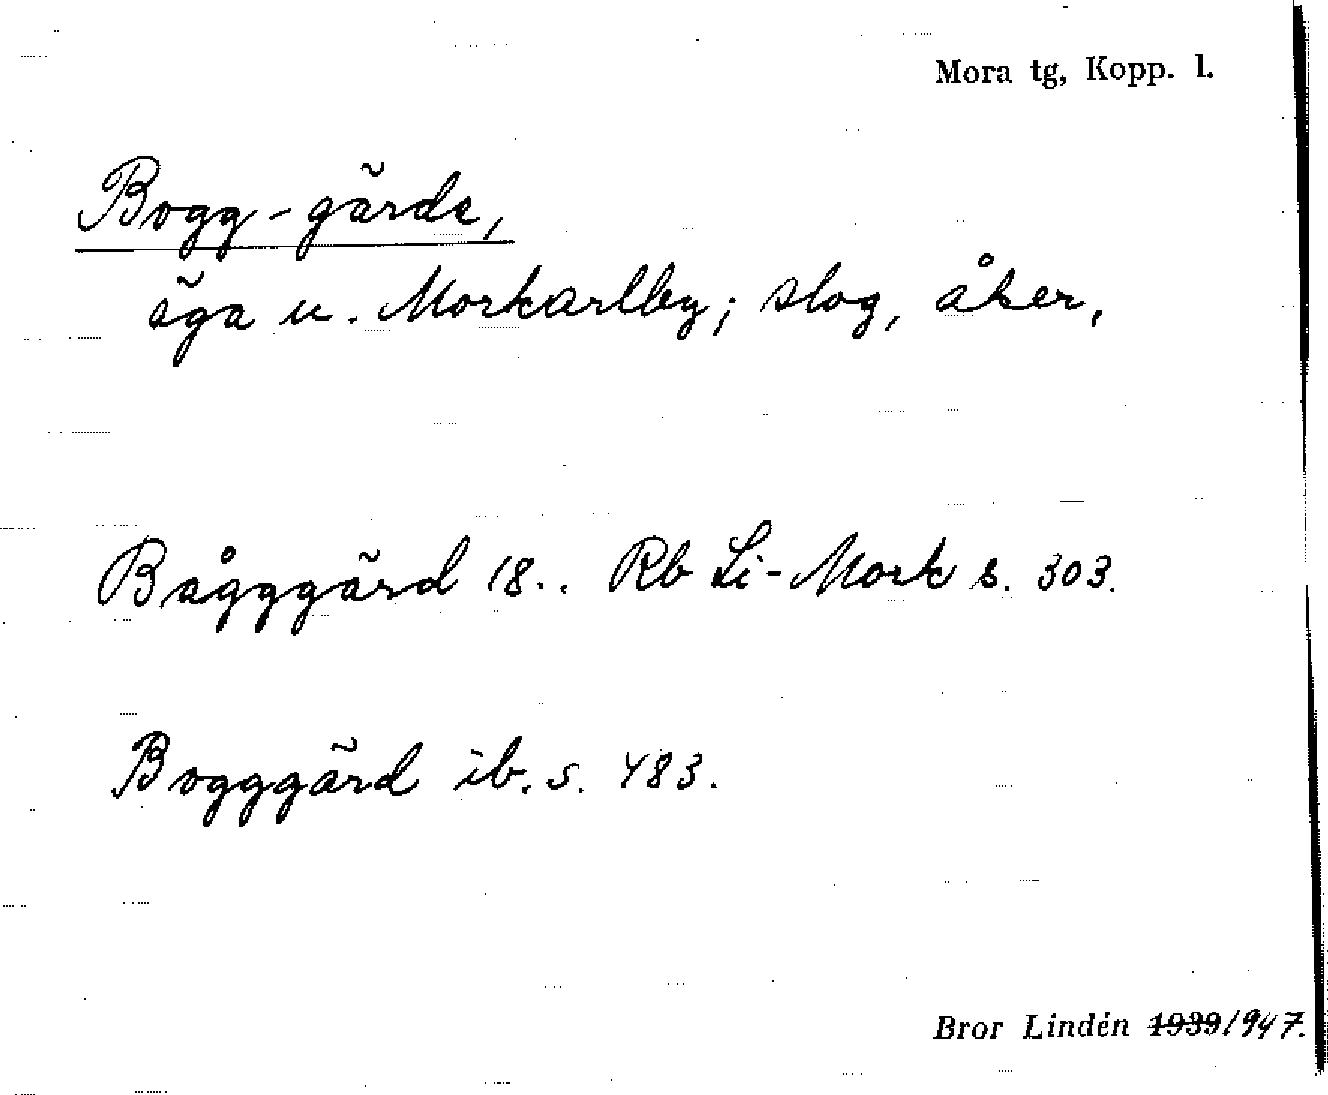 Mora tg, Kopp. l.
Bogg-gärde,
äga u. Morkarlby; slog, åker,
Bågggärd 18.. Rb Li-Mork s. 303.
Bogggärd ib. s. 483.
Bror Lindén 1939 1947.